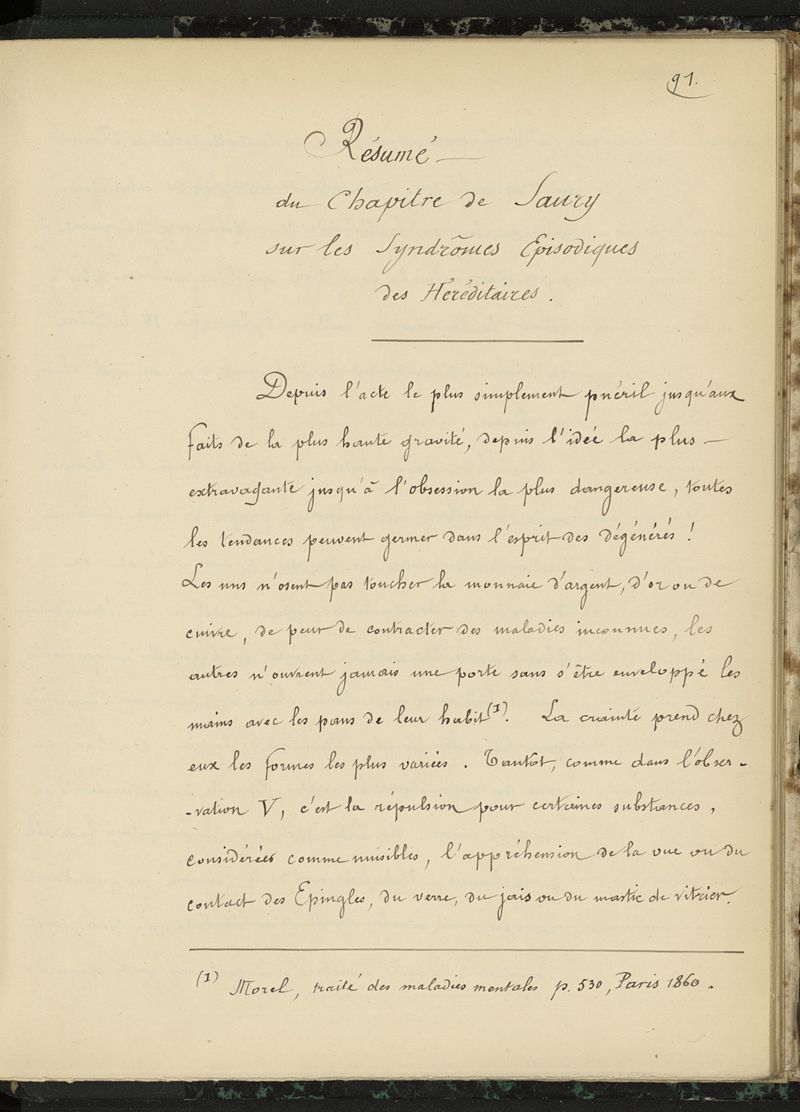 91.
Résumé —
du Chapitre de Saury
sur les Syndrômes Episodiques
des Héréditaires.
Depuis l'acte le plus simplement puéril jusqu'aux
faits de la plus haute gravité, depuis l'idée la plus —
extravagante jusqu'à l'obsession la plus dangereuse, toutes
les tendances peuvent germer dans l'esprit des dégénérés !
Les uns n'osent pas toucher la monnaie d'argent, d'or ou de
cuivre, de peur de contracter des maladies inconnues, les
autres n'ouvrent jamais une porte sans s'être enveloppé les
mains avec les pans de leur habit (1). La crainte prend chez
eux les formes les plus variées. Tantôt, comme dans l'obser-
-vation V, c'est la répulsion pour certaines substances,
considérées comme nuisibles, l'appréhension de la vue ou du
contact des Epingles, du verre, du jais ou du mastic de vitrier.
(1) Morel, traité des maladies mentales p. 530, Paris 1860.